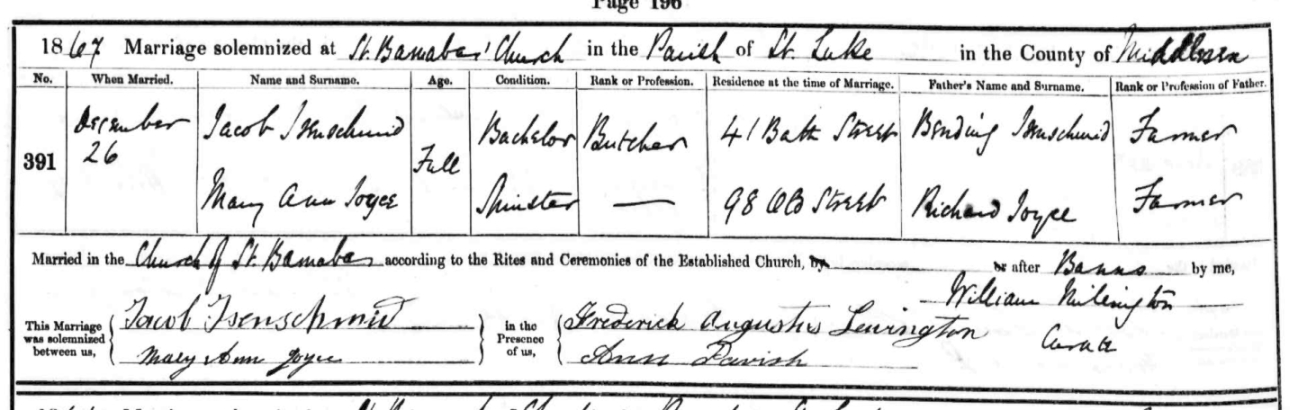 Page 196
1867 Marriage solemnized at St. Barnabas' Church in the Parish of St. Luke in the County of Middlesex
No. When Married. Name and Surname. Age. Condition. Rank or Profession. Residence at the time of Marriage. Father's Name and Surname. Rank or Profession of Father.
391 December 26 Jacob Isenschmid Full Bachelor Butcher 41 Bath Street Bending Isenschmid Farmer
Mary Ann Joyce Spinster — 98 Old Street Richard Joyce Farmer
Married in the Church of St. Barnabas according to the Rites and Ceremonies of the Established Church, by or after Banns by me,
William
This Marriage was solemnized between us, Jacob Isenschmid in the Presence of us, Frederick Augustus Lewington Curate
Mary Ann Joyce Ann Parish